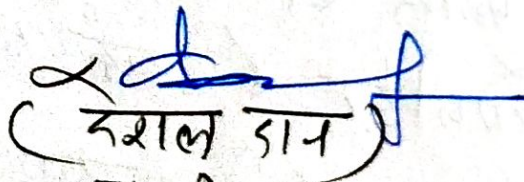 (देशल दान)